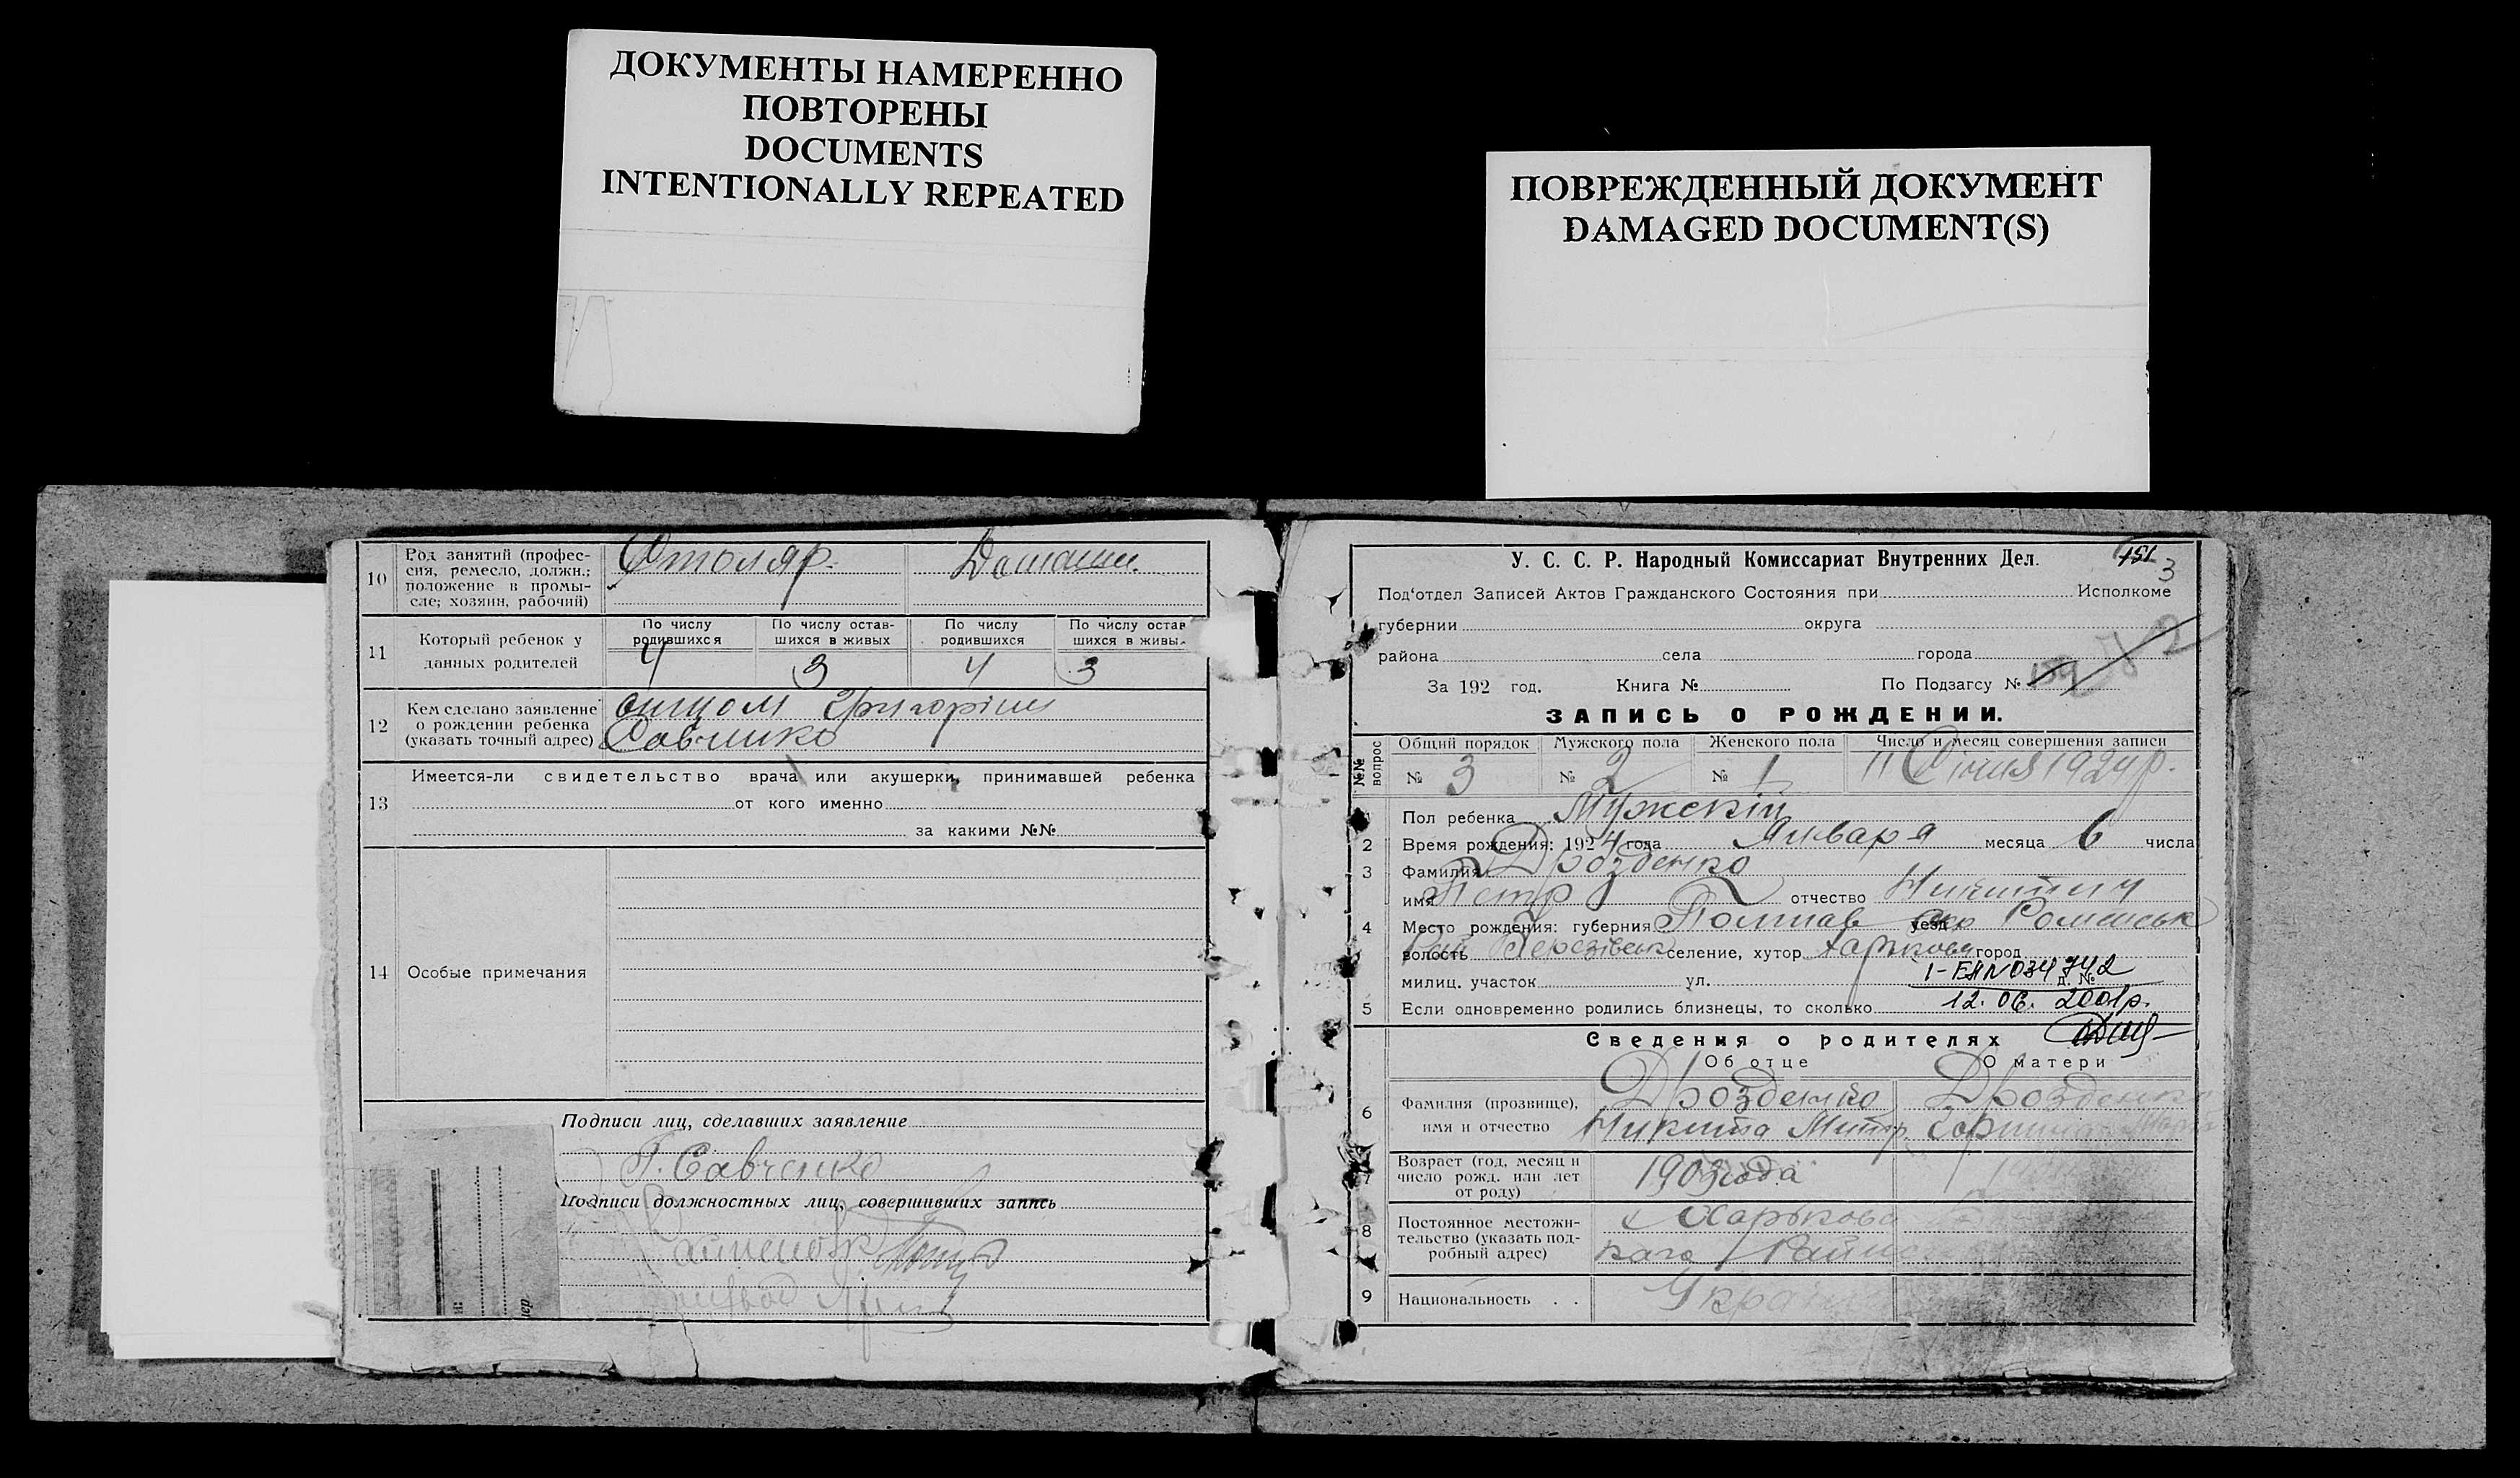 ДОКУМЕНТЫ НАМЕРЕННО
ПОВТОРЕНЫ
DOCUMENTS
INTENTIONALLY REPEATED
ПОВРЕЖДЕННЫЙ ДОКУМЕНТ
DAMAGED DOCUMENT(S)
10 Род занятий (профес-
сия, ремесло, должн.;
положение в промы-
сле; хозяин, рабочий)
Столяр.
11 Который ребенок у
данных родителей
По числу родившихся
По числу остав-
шихся в живых
По числу родившихся
По числу остав
шихся в живы
4 3 4 3
12 Кем сделано заявление
о рождении ребенка
(указать точный адрес)
Савченко
13 Имеется-ли свидетельство врача или акушерки, принимавшей ребенка
от кого именно
за какими №№
14 Особые примечания
Подписи лиц, сделавших заявление
Г. Савченко
Подписи должностных лиц, совершивших запись
151
3
У. С. С. Р. Народный Комиссариат Внутренних Дел.
Под'отдел Записей Актов Гражданского Состояния при Исполкоме
губернии округа
района села города
За 192 год. Книга № По Подзагсу №
ЗАПИСЬ О РОЖДЕНИИ.
№№ вопрос
Общий порядок Мужского пола Женского пола Число и месяц совершения записи
№ 3 № 2 № 1 11 Січня 1924 р.
1 Пол ребенка Мужскій
2 Время рождения: 1924 года Января месяца 6 числа
3 Фамилия Дрозденко
имя Петр отчество
4 Место рождения: губерния Полтав уезд окр Роменськ
волость селение, хутор город
милиц. участок ул. д. №
1-ЕАN 034742
5 Если одновременно родились близнецы, то сколько
12.06. 2001р.
Сведения о родителях
Об отце О матери
6 Фамилия (прозвище),
имя и отчество
Дрозденко Дрозденко
Никита Митр.
7 Возраст (год, месяц и
число рожд. или лет
от роду)
1903 года
8 Постоянное местожи-
тельство (указать под-
робный адрес)
9 Национальность . .